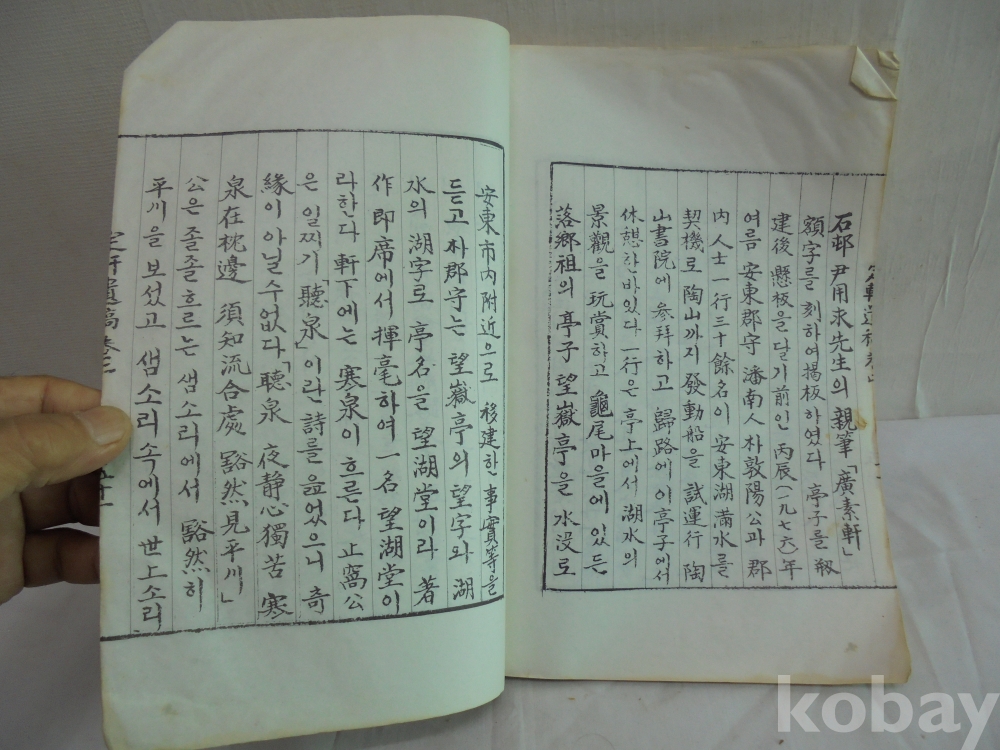 石邨 尹用求先生의 親筆「廣素軒」
額字를 刻하여揭板하였다 亭子를 
建後 懸板을달기前인 丙辰(一九七六)年
여름 安東郡守 潘南人 朴敦陽公과 郡
內 人士一行三十餘名이 安東湖滿水를
契機로 陶山까지 發動船을 試運行 陶
山書院에 參拜하고 歸路에 이亭子에서
休憩한바있다 一行은 亭上에서 湖水의
景觀을 玩賞하고 龜尾마을에 있든
落鄕祖의 亭子 望嶽亭을 水没로
安東市內附近으로 移建한 事實等을
듣고 朴郡守는 望嶽亭의 望字와 湖
水의 湖字로 亭名을 望湖堂이라 著
作 即席에서 揮毫하여 一名 望湖堂이
라한다 軒下에는 寒泉이 흐른다 止窩公
은 일찌기「聽泉」이란 詩를 읊었으니 奇
緣이 아닐수없다「聽泉 夜静心獨苦 寒
泉在枕邊 須知流合處 豁然見平川」
公은 졸졸흐르는 샘소리에서 豁然히
平川을 보셨고 샘소리속에서 世上소리
定軒遺稿卷之
kobay